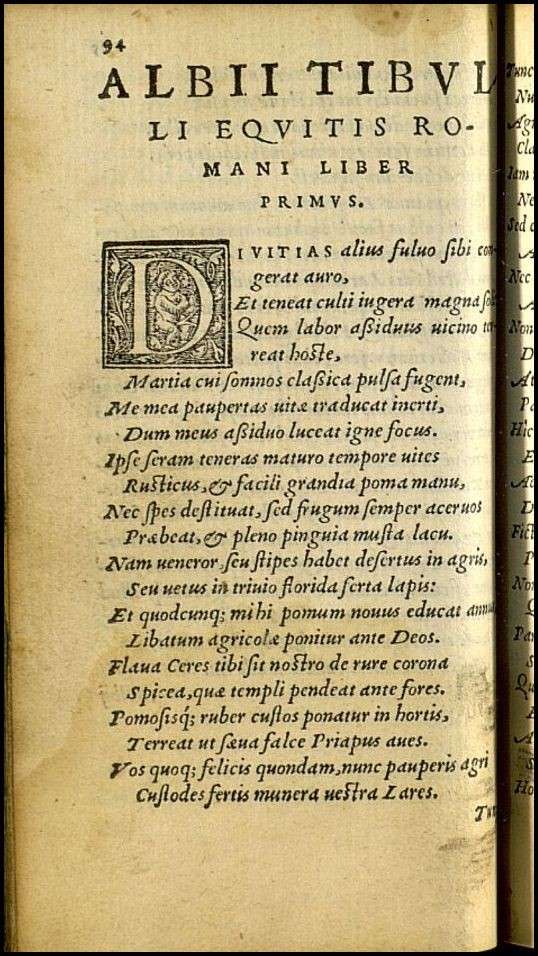 94
ALBII TIBVL
LI EQVITIS RO-
MANI LIBER
PRIMVS.
DIVITIAS alius fuluo ſibi con-
gerat auro,
Et teneat culti iugera magna ſoli
Quem labor aßiduus uicino ter-
reat hoſte,
Martia cui ſomnos claßica pulſa fugent,
Me mea paupertas uitæ traducat inerti,
Dum meus aßiduo luceat igne focus.
Ipſe ſeram teneras maturo tempore uites
Ruſticus, & facili grandia poma manu,
Nec ſpes deſtituat, ſed frugum ſemper aceruos
Præbeat, & pleno pinguia muſta lacu.
Nam ueneror, ſeu ſtipes habet deſertus in agris,
Seu uetus in triuio florida ſerta lapis:
Et quodcunq; mihi pomum nouus educat annus
Libatum agricolæ ponitur ante Deos.
Flaua Ceres tibi ſit noſtro de rure corona
Spicea, quæ templi pendeat ante fores.
Pomoſisq́; ruber cuſtos ponatur in hortis,
Terreat ut ſæua falce Priapus aues.
Vos quoq; felicis quondam, nunc pauperis agri
Cuſtodes fertis munera ueſtra Lares.